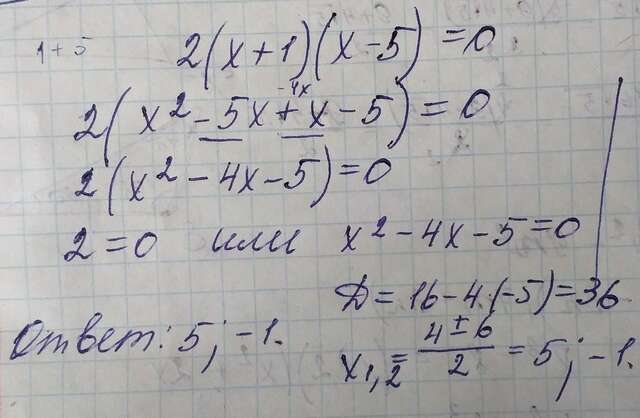 1+5
2(x+1)(x-5)=0
-4x
2(x²-5x+x-5)=0
2(x²-4x-5)=0
2=0 или x²-4x-5=0
D=16-4·(-5)=36
Ответ: 5; -1.
x₁,₂=(4±6)/2=5; -1.